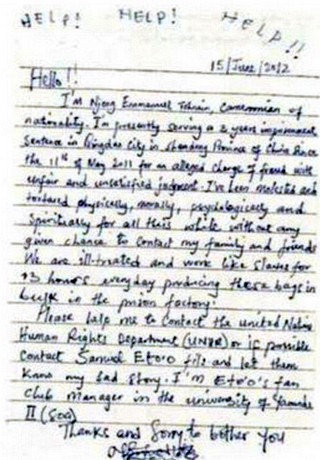 HELP! HELP! HELP!!
15/June/2012
Hello!!
I'm Njong Emmanuel Tohnain, Cameroonian of
nationality. I'm presently serving a 3 years imprisonment
Sentence in Qingdao City in Shandong Province of China Since
the 11th of May 2011 for an alleged charge of fraud with
unfair and unsatisfied judgment. I've been molested and
tortured physically, morally, psychologically and
Spiritually for all this while without any
given chance to contact my family and friends
We are ill-treated and work like Slaves for
13 hours everyday producing these bags in
bulk in the prison factory.
Please help me to Contact the united Nations
Human Rights Department (UNHR) or if possible
contact Samuel Eto'o fils and let them
know my bad Story. I'm Eto'o's fan
club manager in the university of Yaounde
II (Soa)
Thanks and Sorry to bother you